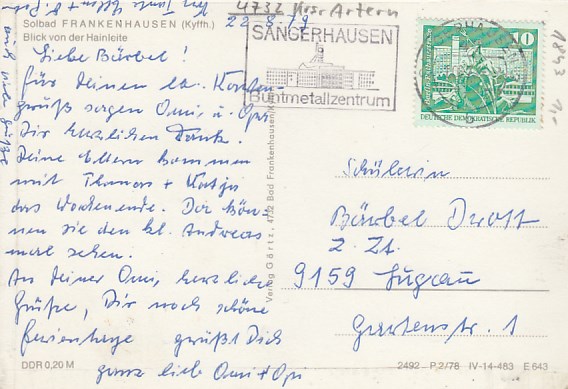 4732 Krsr Artern
Solbad FRANKENHAUSEN (Kyffh.)
Blick von der Hainleite
22.8.79
Liebe Bärbel!
für Deinen lb. Karten-
gruß sagen Omi u. Opi
Dir herzlichen Dank.
Deine Eltern kommen
mit Thomas + Katja
das Wochenende. Da kön-
nen sie den kl. Andreas
mal sehen.
An Deiner Omi, herzliche
Grüße, Dir noch schöne
Ferientage grüßt Dich
ganz lieb Omi + Opi
DDR 0,20 M
Verlag Görtz, 4732 Bad Frankenhausen/K
SANGERHAUSEN
Buntmetallzentrum
10
DEUTSCHE DEMOKRATISCHE REPUBLIK
1843
1,-
Schülerin
Bärbel Drott
z. Zt.
9159 Lugau
Gartenstr. 1
2492 - P 2/78 IV-14-483 E 643